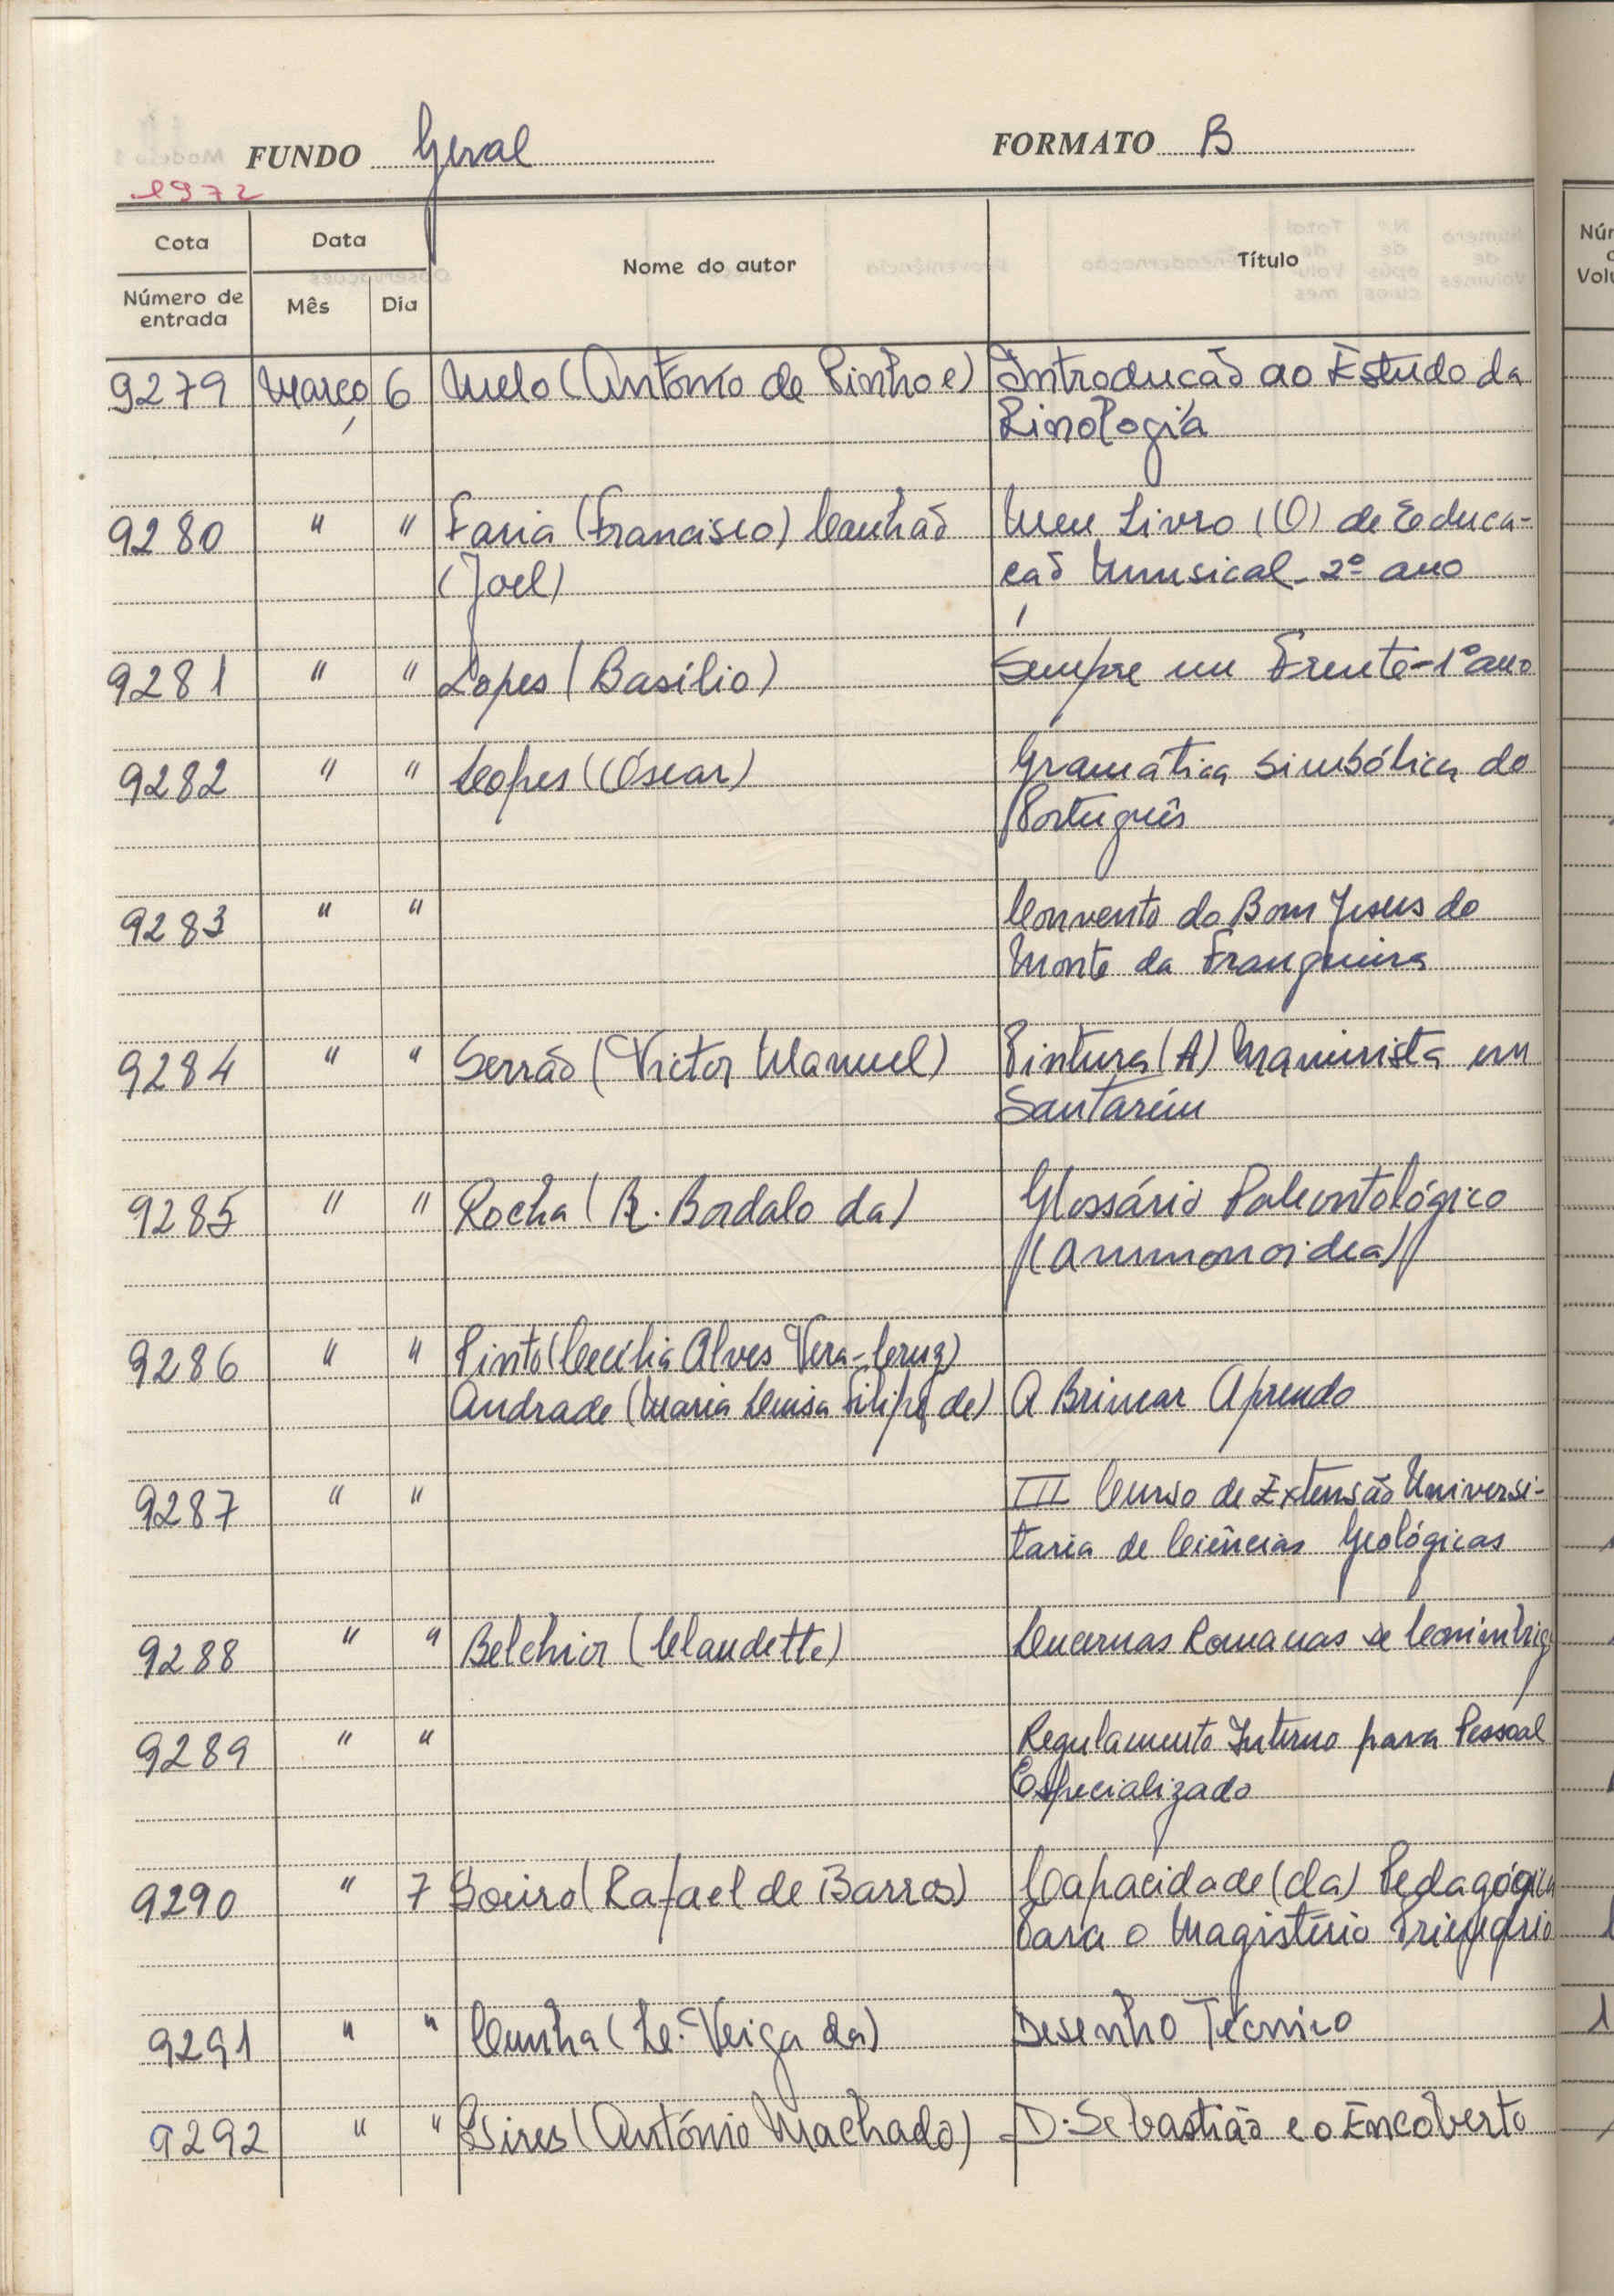 FUNDO Geral FORMATO B
1972
Cota Data Nome do autor Título
Número de entrada Mês Dia
9279 Março 6 Melo (António de Pinho e) Introducão ao Estudo da
Rinologia
9280 " " Faria (Francisco) Canhão Meu Livro (O) de Educa-
(Joel) ção Musical - 2º ano
9281 " " Lopes (Basílio) Sempre em Frente - 1º ano
9282 " " Lopes (Óscar) Gramática Simbólica do
Português
9283 " " Convento do Bom Jesus do
Monte da Franqueira
9284 " " Serrão (Victor Manuel) Pintura (A) Maneirista em
Santarém
9285 " " Rocha (R. Bordalo da) Glossário Paleontológico
(Ammonoidea)
9286 " " Pinto (Cecília Alves Vera-Cruz)
Andrade (Maria Luisa Filipe de) A Brincar Aprendo
9287 " " III Curso de Extensão Universi-
taria de Ciências Geológicas
9288 " " Belchior (Claudette) Lucernas Romanas de Conimbriga
9289 " " Regulamento Interno para Pessoal
Especializado
9290 " 7 (Rafael de Barros) Capacidade (da) Pedagógica
Para o Magistério Primário
9291 " " Cunha (L. Veiga da) Desenho Técnico 1
9292 " " Pires (António Machado) D. Sebastião e o Encoberto